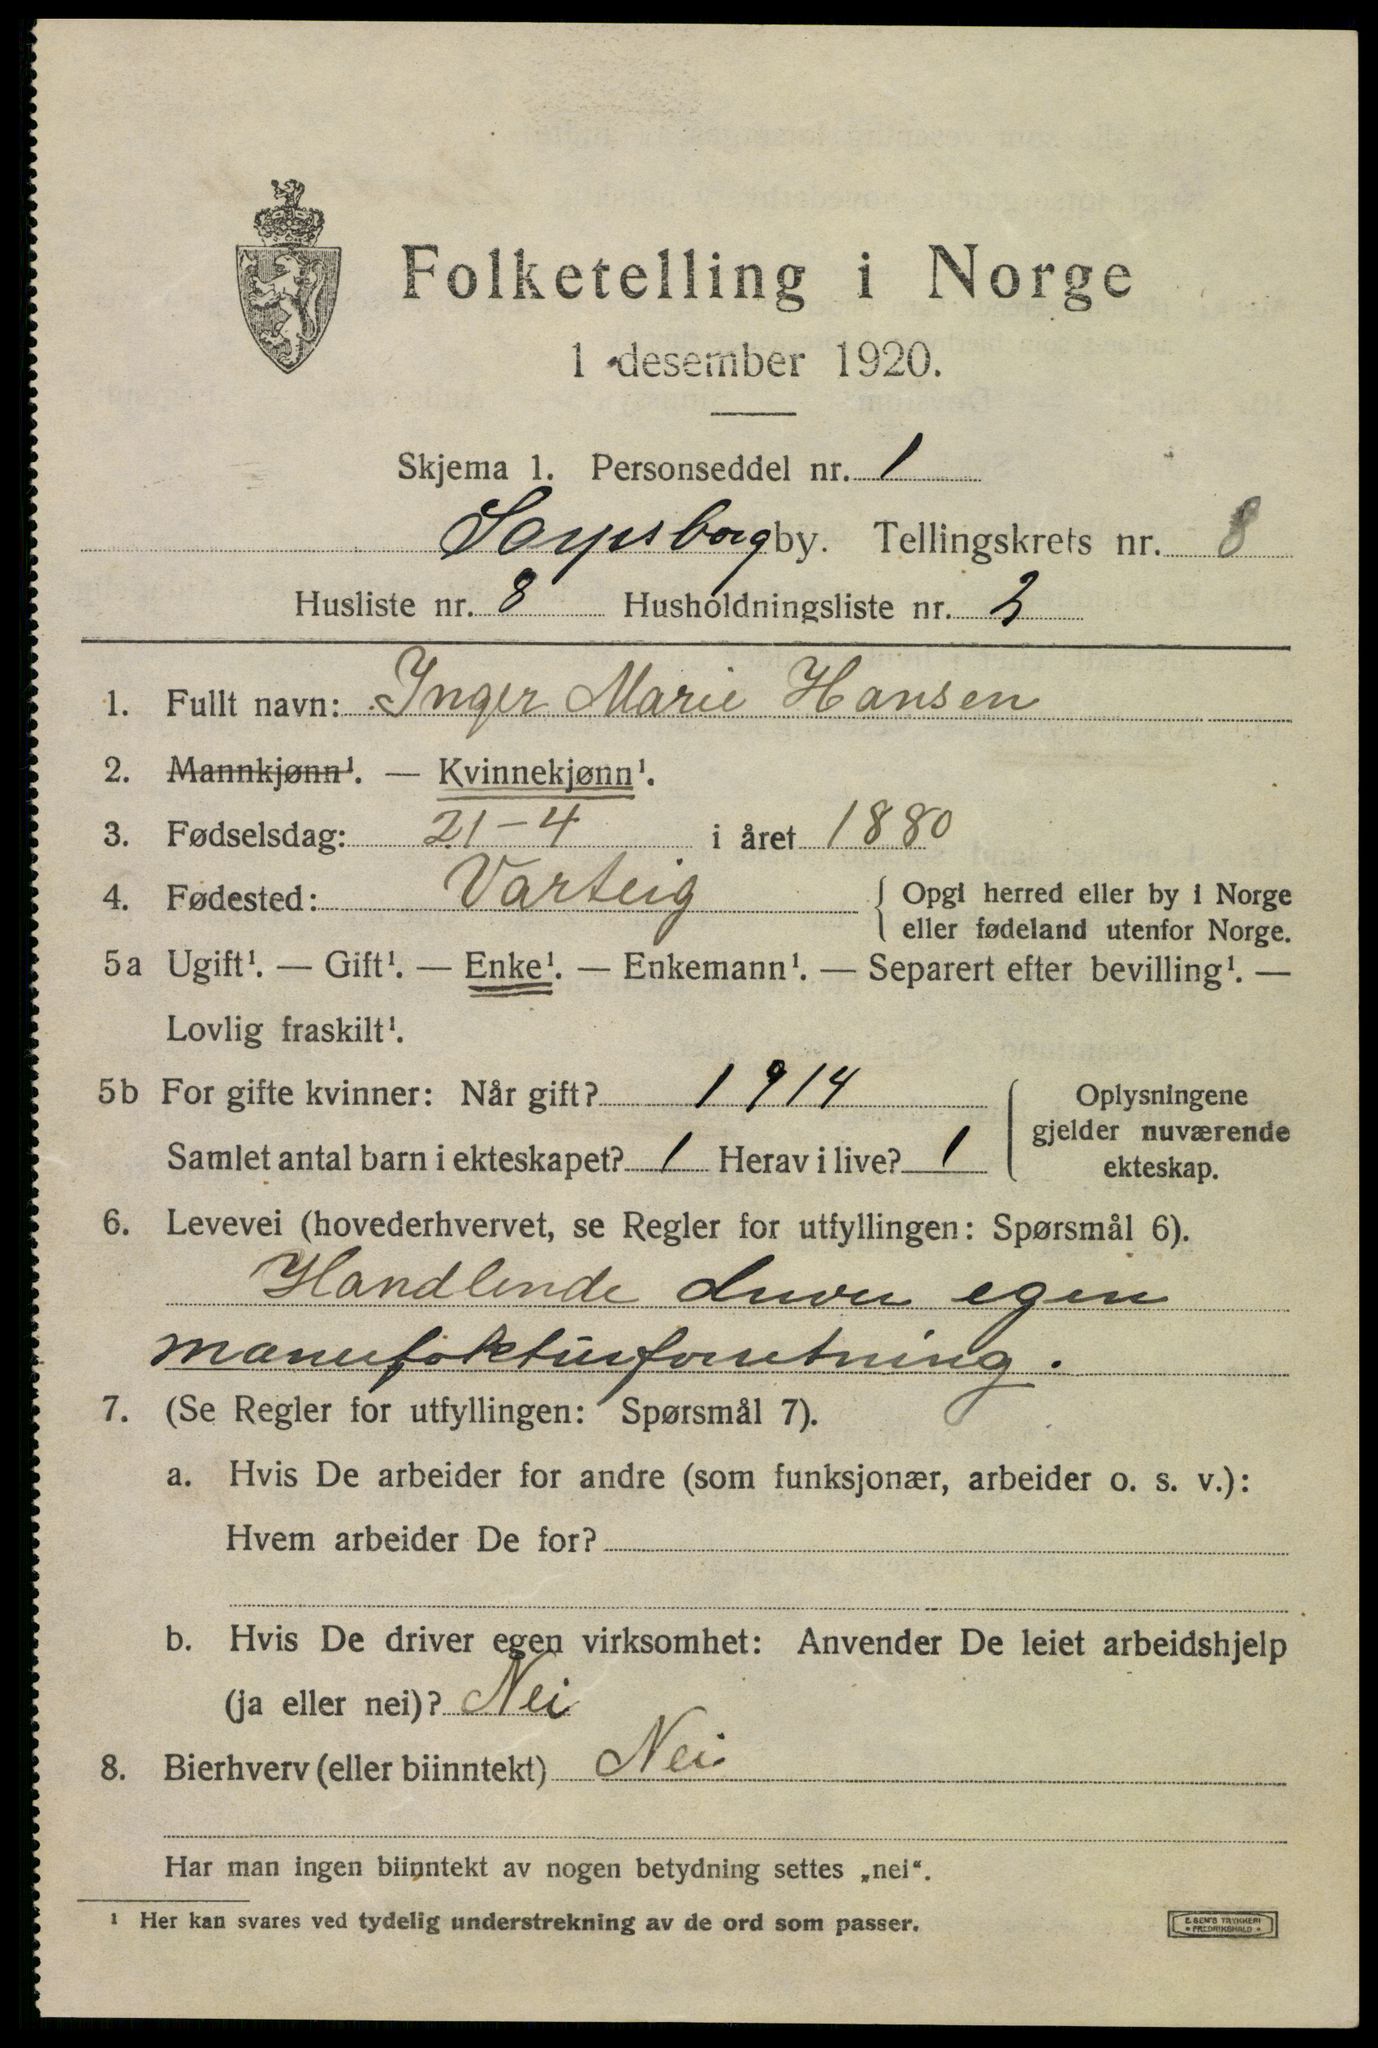 Folketelling i Norge
1 desember 1920.
Skjema 1. Personseddel nr. 1
Sarpsborg by. Tellingskrets nr. 8
Husliste nr. 8 Husholdningsliste nr. 2
1. Fullt navn: Inger Marie Hansen
2. Mannkjønn¹. — Kvinnekjønn¹.
3. Fødselsdag: 21-4 i året 1880
4. Fødested: Varteig { Opgi herred eller by i Norge
eller fødeland utenfor Norge.
5a Ugift¹. — Gift¹. — Enke¹. — Enkemann¹. — Separert efter bevilling¹. —
Lovlig fraskilt¹.
5b For gifte kvinner: Når gift? 1914
Samlet antal barn i ekteskapet? 1 Herav i live? 1
Oplysningene
gjelder nuværende
ekteskap.
6. Levevei (hovederhvervet, se Regler for utfyllingen: Spørsmål 6).
Handlende driver egen
manufakturforretning.
7. (Se Regler for utfyllingen: Spørsmål 7).
a. Hvis De arbeider for andre (som funksjonær, arbeider o. s. v.):
Hvem arbeider De for?
b. Hvis De driver egen virksomhet: Anvender De leiet arbeidshjelp
(ja eller nei)? Nei
8. Bierhverv (eller biinntekt) Nei
Har man ingen biinntekt av nogen betydning settes „nei“.
¹ Her kan svares ved tydelig understrekning av de ord som passer.
E. SEM'S TRYKKERI
• FREDRIKSHALD •